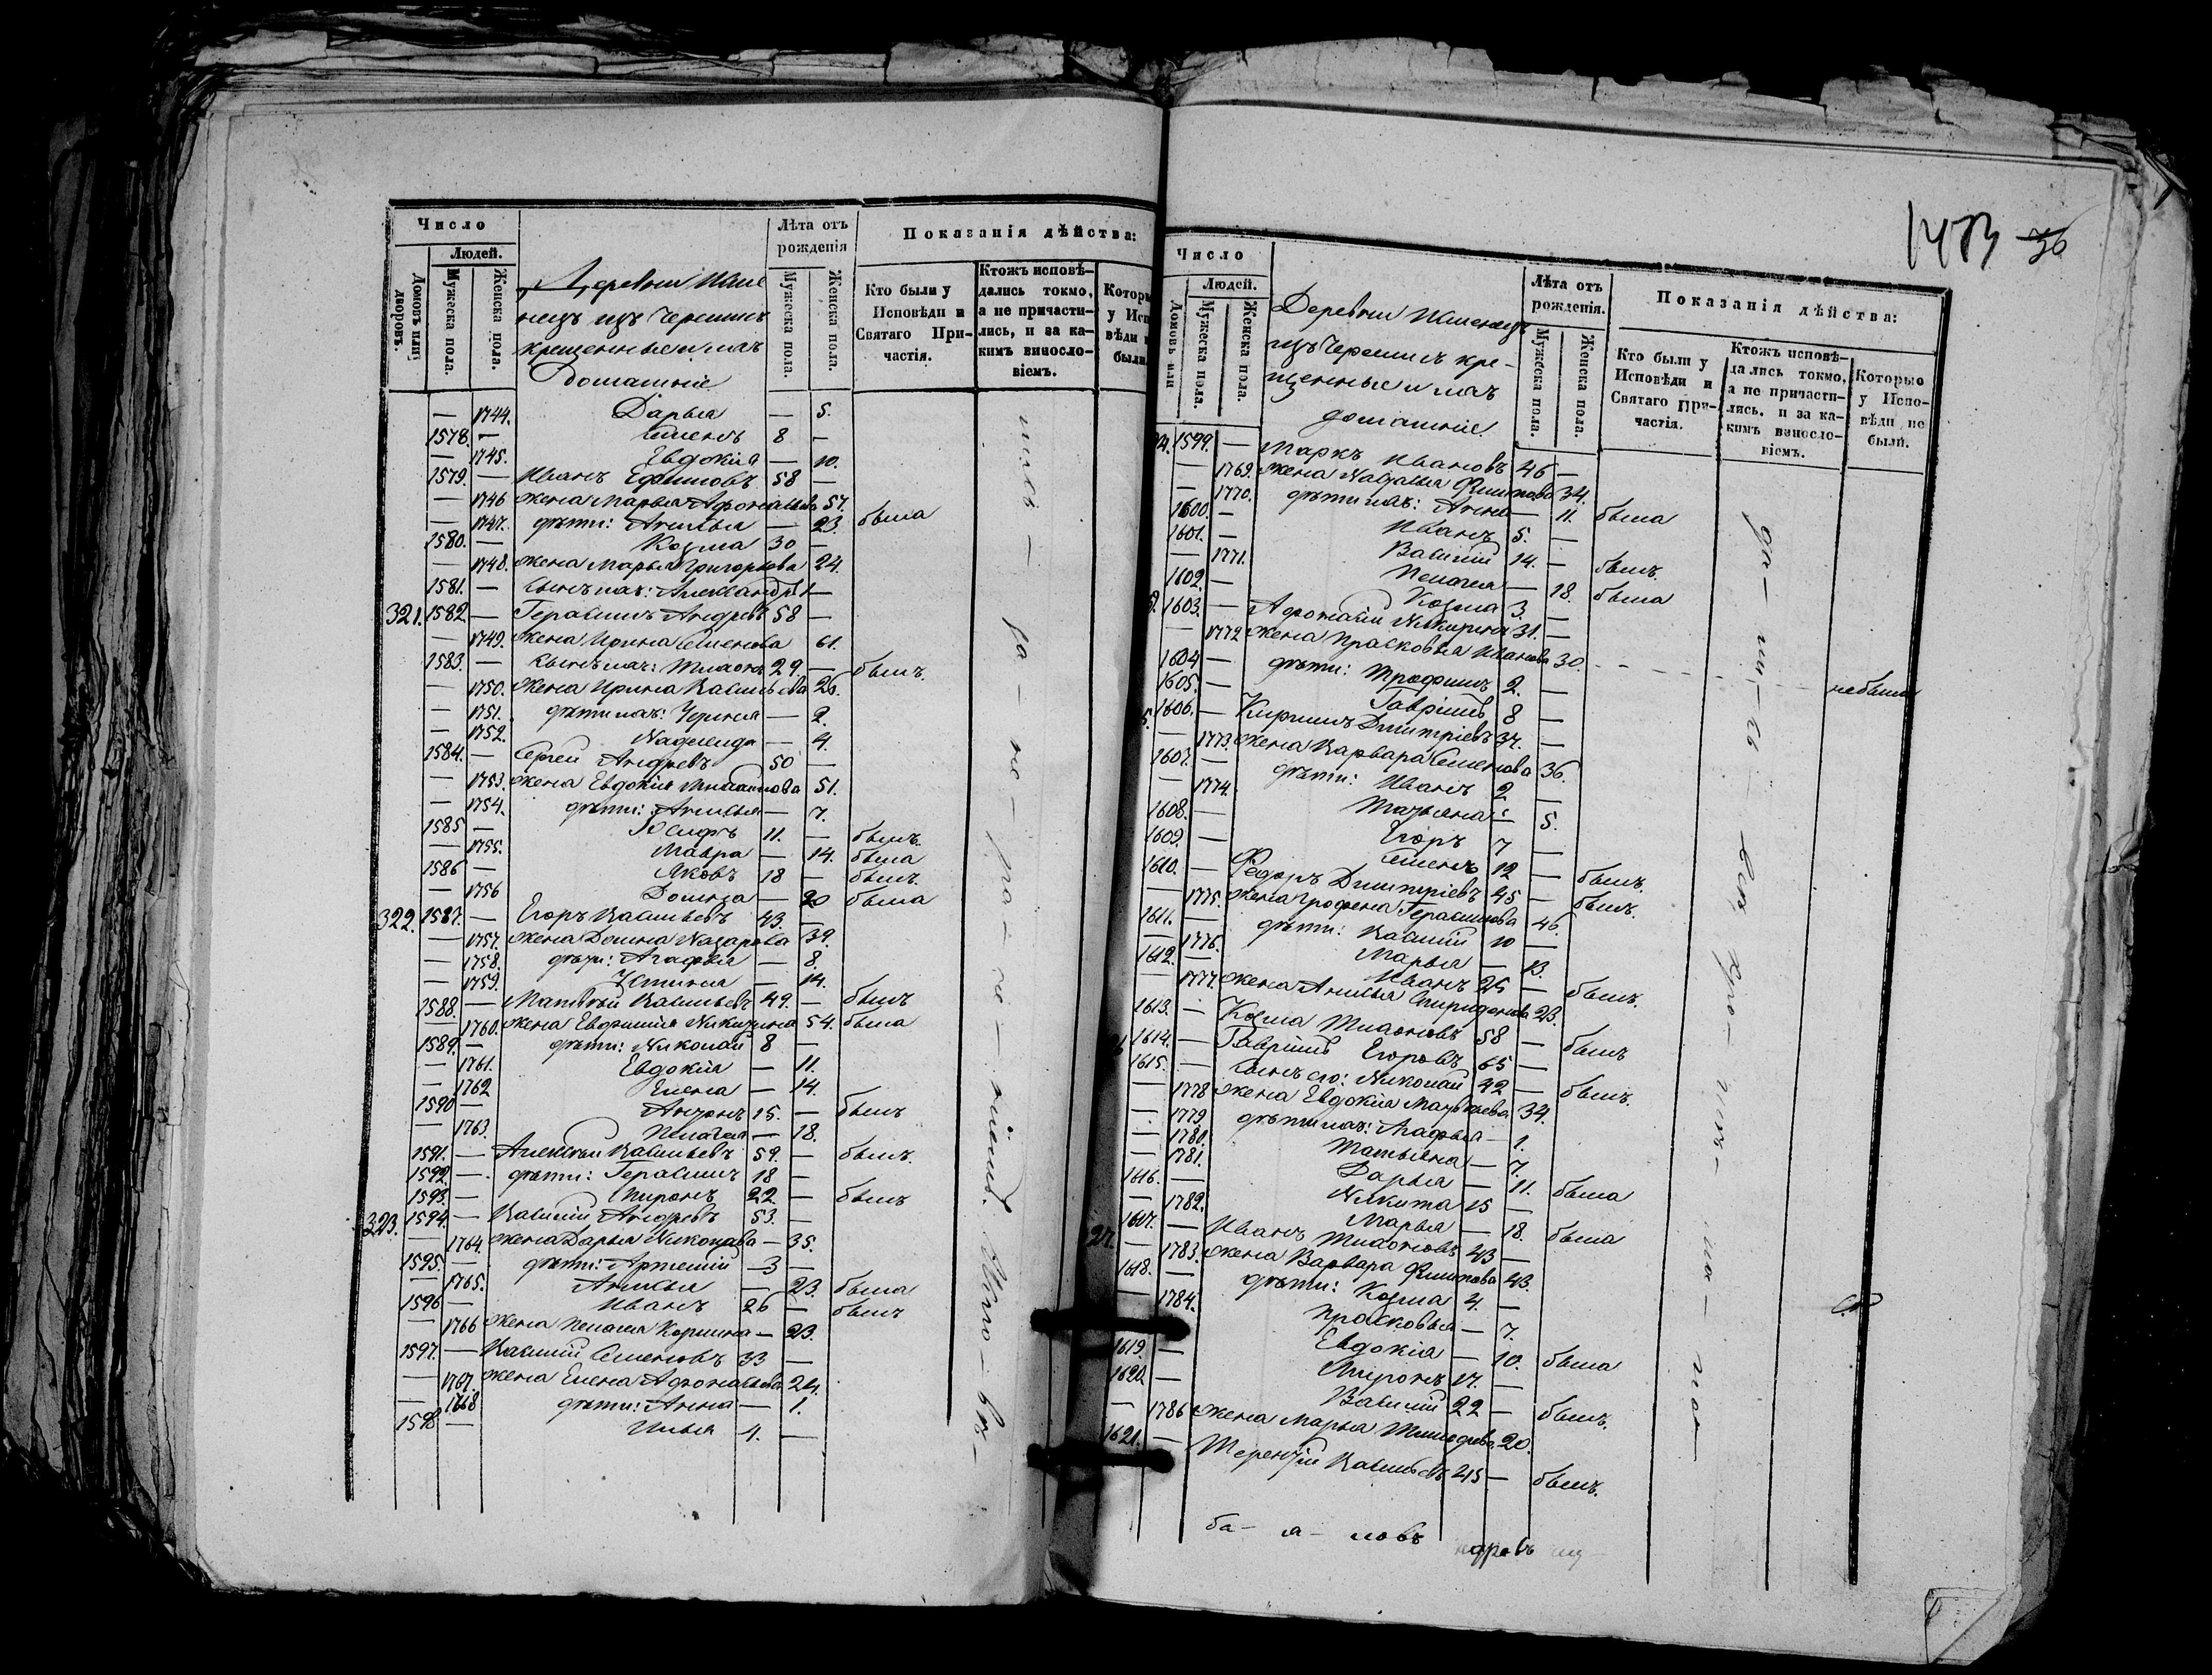 Число
Людей.
Домовъ или дворовъ.
Мужеска пола.
Женска пола.
Деревни
нецъ изъ Черемисъ
крещенные и ихъ
домашніе
Лѣта отъ рожденія
Мужеска пола.
Женска пола.
Показанія дѣйства:
Кто были у Исповѣди и Святаго Причастія.
Ктожъ исповѣдались токмо, а не причастились, и за какимъ винословіемъ.
— 1744. Дарья — 5.
1578. — Семенъ 8 —
— 1745. Евдокія — 10.
1579. — Иванъ Ефимовъ 58 —
— 1746 жена Марья Афонасьева 57.
— 1747. дѣти: Анисья — 23. была
1580. — Козма 30 —
— 1748. жена Марья Григорьева 24.
1581. — сынъ ихъ: Александръ 1 —
321. 1582 — Герасимъ Андреевъ 58 —
— 1749. жена Ирина Семенова 61.
1583. — сынъ ихъ: Тихонъ 29. — былъ.
— 1750. жена Ирина Васильева 26.
— 1751. дѣти ихъ: — 2.
— 1752. — 4.
1584. — Сергей Андреевъ 50 —
— 1753. жена Евдокія Михайлова 51.
— 1754. дѣти: Анисья — 7.
1585 — Іосифъ 11. — былъ.
— 1755. Мавра — 14. была
1586 — Яковъ 18 — былъ.
— 1756 Домна — 20 была
322. 1587. — Егоръ Васильевъ 43. —
— 1757. жена Домна Назарова 39.
— 1758. дѣти: Агафья — 8.
— 1759. Устинья — 14.
1588. — Матвѣй Васильевъ 49. — былъ
— 1760. жена Евфимія Никитина 54. была
1589. — дѣти: Николай 8 —
— 1761. Евдокія — 11.
— 1762 Елена — 14.
1590 — Антонъ 15. — былъ
— 1763. Пелагея — 18.
1591. — Алексѣй Васильевъ 59. — былъ.
1592 — дѣти: Герасимъ 18 —
1593 — Миронъ 22 — былъ
323. 1594. — Василій Андреевъ 53. —
— 1764. жена Дарья Николаева — 35.
1595. — дѣти: Артемій 3 —
— 1765. Анисья — 23. была
1596 — Иванъ 26 — былъ
— 1766 жена Пелагея — 23.
1597. — Василій Семеновъ 33 —
— 1767. жена Елена Афонасьева 24.
— 1768 дѣти: Анна — 1.
1598 — Илья 4. —
1473 36
Число
Людей.
Домовъ или
Мужеска пола.
Женска пола.
Деревни
изъ Черемисъ кре-
щенные и ихъ
домашніе.
Лѣта отъ рожденія.
Мужеска пола.
Женска пола.
Показанія дѣйства:
Кто были у Исповѣди и Святаго Причастія.
Ктожъ исповѣдались токмо, а не причастились, и за какимъ винословіемъ.
Которые у Исповѣди не были.
1599. — Маркъ Ивановъ 46 —
— 1769. жена Наталья Филипова 34.
— 1770. дѣти ихъ: Анна — 11. была
1600. — Иванъ 5. —
1601. — Василій 14. — былъ.
— 1771. Пелагея — 18. была
1602. — Козма 3. —
1603. — Афонасій Никитинъ 31. —
— 1772 жена Прасковья Иванова 30. небыла
1604 — дѣти: Трофимъ 2. —
1605. — Гаврилъ 8 —
1606. — Кирилъ Дмитріевъ 37. —
— 1773. жена Варвара Семенова 36.
1607. — дѣти: Иванъ 2 —
— 1774. Татьяна — 5.
1608. — Егоръ 7 —
1609. — Семенъ 12 — былъ.
1610. — Федоръ Дмитріевъ 45 — былъ.
— 1775. жена Герасимова 46.
1611. — дѣти: Василій 10 —
— 1776. Марья — 13.
1612. — Иванъ 25 — былъ.
— 1777. жена Анисья Спиридонова 23.
1613. — Козма Тихоновъ 58 — былъ
1614. — Гаврилъ Егоровъ 65 —
1615. — сынъ его: Николай 42 — былъ.
— 1778 жена Евдокія Матвѣева 34.
— 1779. дѣти ихъ: Агафья — 1.
— 1780. Татьяна — 7.
— 1781. Дарья — 11. была
1616. — Никита 15 —
— 1782. Марья — 18. была
1617. — Иванъ Тихоновъ 43 —
— 1783. жена Варвара Филипова 43.
1618. — дѣти: Козма 4. —
— 1784. Прасковья — 7.
Евдокія — 10. была
1619. — Миронъ 17. —
1620 — Василій 22 — былъ.
— 1786 жена Марья 20.
1621. — Терентій Васильевъ 45 — былъ.